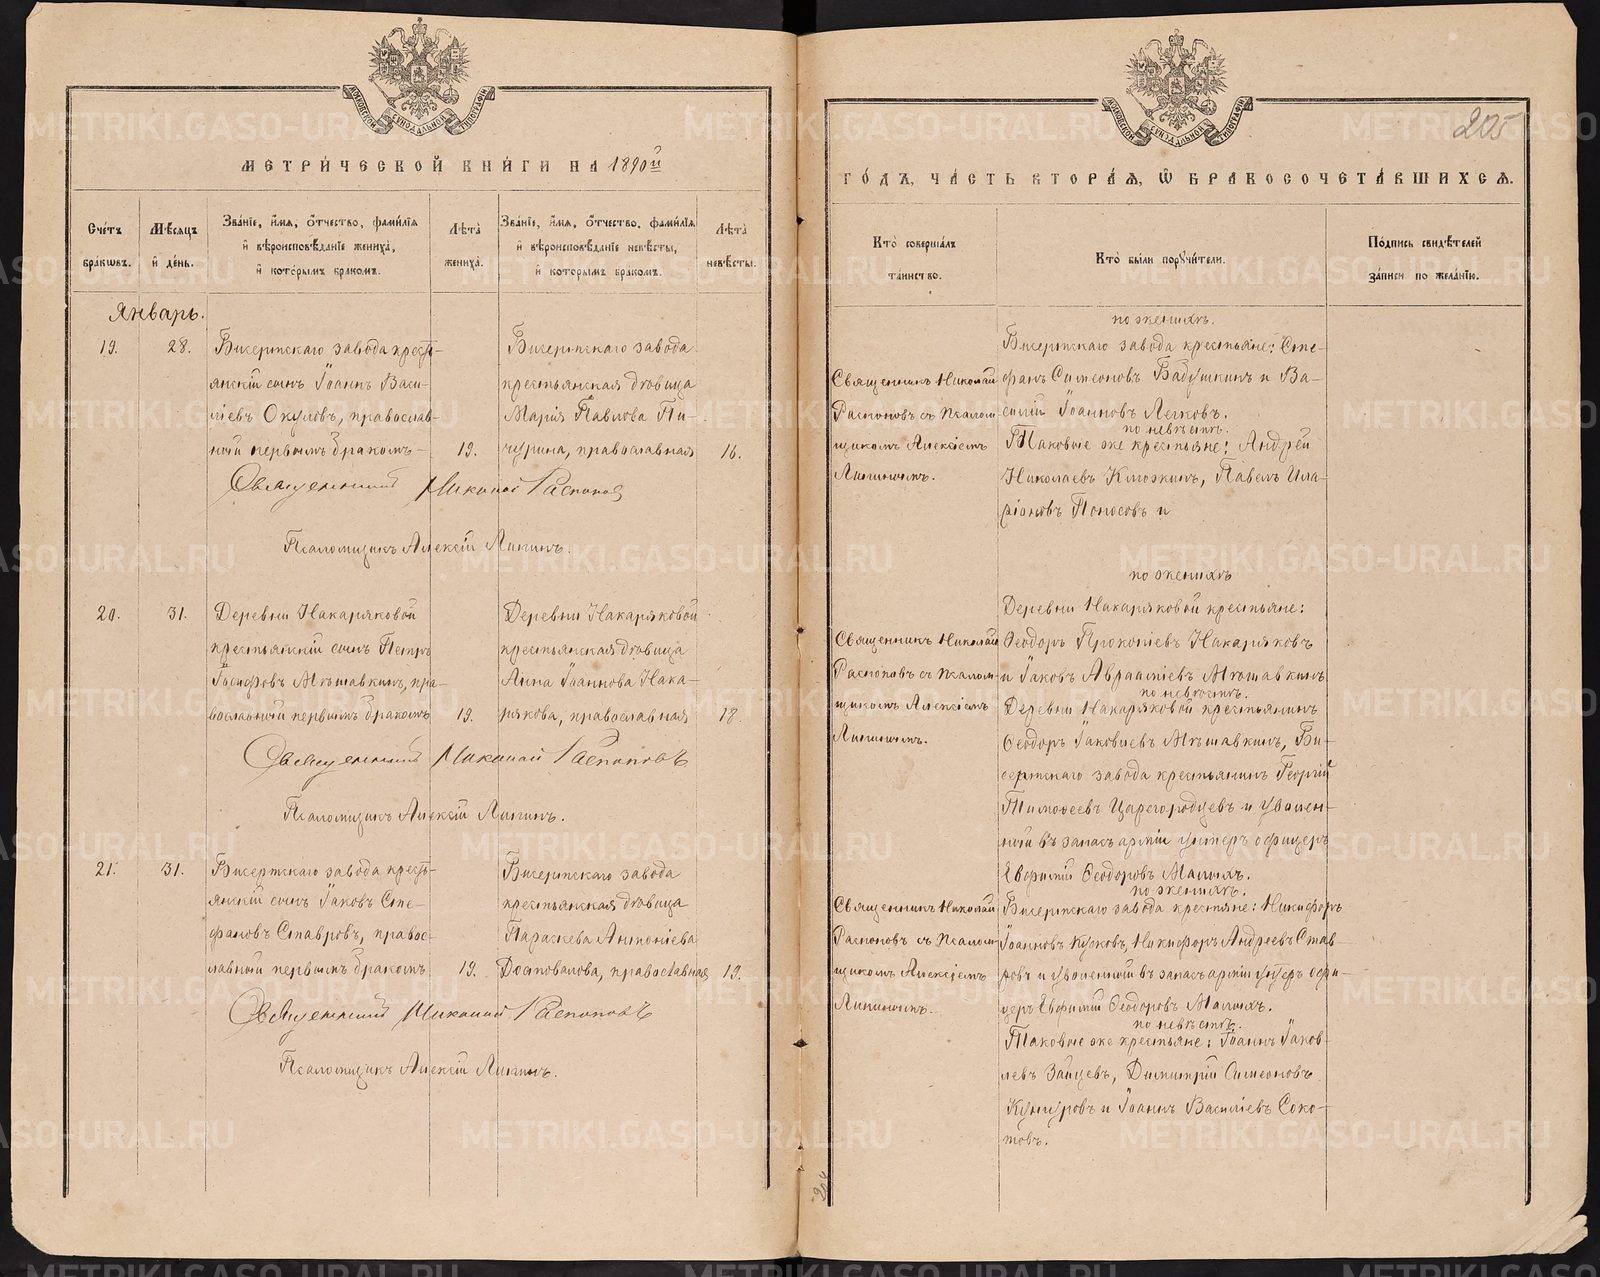 МЕТРИ́ЧЕСКОЙ КНИ́ГИ НА 1890й
Сче́тъ бра́кωвъ.
Мѣ́сяцъ и҆ де́нь.
Зва́нїе, и҆́мѧ, ѻ҆́тчество, фами́лїѧ и҆ вѣроисповѣ́данїе жениха́, и҆ кото́рымъ бракомъ.
Лѣ́та жениха́.
Зва́нїе, и҆́мѧ, ѻ҆́тчество, фами́лїѧ и҆ вѣроисповѣ́данїе невѣ́сты, и҆ кото́рымъ бракомъ.
Лѣ́та невѣ́сты.
Январь.
19.
28.
Бисертскаго завода кресть-
янскій сынъ Іоаннъ Васи-
ліевъ Окуловъ, православ-
ный первымъ бракомъ-
19.
Бисертскаго завода
крестьянская дѣвица
Марія Павлова Пи-
чурина, православная
16.
Священникъ Николай Распопов
Псаломщикъ Алексій Липинъ.
20.
31.
Деревни Накаряковой
крестьянскій сынъ Петръ
Іосифовъ Мѣшавкинъ, пра-
вославный первымъ бракомъ
19.
Деревни Накаряковой
крестьянская дѣвица
Анна Іоаннова Нака-
рякова, православная
18.
Священникъ Николай Распоповъ
Псаломщикъ Алексій Липинъ.
21.
31.
Бисертскаго завода кресть-
янскій сынъ Іаковъ Сте-
фановъ Ставровъ, право-
славный первымъ бракомъ
19.
Бисертскаго завода
крестьянская дѣвица
Параскева Антоніева
Доможалова, православная
19.
Священникъ Николай Распоповъ
Псаломщикъ Алексій Липинъ.
205
ГО́ДЪ, ЧА́СТЬ ВТОРА́Ѧ, Ѽ БРАКОСОЧЕТА́ВШИХСѦ.
Кто̀ соверша́лъ таинство.
Кто̀ бы́ли порꙋчи́тели.
По́дпись свидѣ́телей за́писи по жела́нїю.
Священникъ Николай
Распоповъ съ Псалом-
щикомъ Алексіемъ
Липинымъ.
по женихѣ.
Бисертскаго завода крестьяне: Сте-
фанъ Симеоновъ Бабушкинъ и Ва-
силій Іоанновъ Легковъ.
по невѣстѣ.
Таковые же крестьяне: Андрей
Николаевъ Клюжинъ, Павелъ Ила-
ріоновъ Поносовъ и
Священникъ Николай
Распоповъ съ Псалом-
щикомъ Алексіемъ
Липинымъ.
по женихѣ
Деревни Накаряковой крестьяне:
Ѳеодоръ Прокопіевъ Накаряковъ
и Іаковъ Авраамiевъ Мѣшавкинъ
по невѣстѣ.
Деревни Накаряковой крестьянинъ
Ѳеодоръ Іаковлевъ Мѣшавкинъ, Би-
сертскаго завода крестьянинъ Георгій
Тимоѳеевъ Царегородцевъ и уволен-
ный въ запасъ арміи унтеръ офицеръ
Евфимій Ѳеодоровъ Малыхъ.
Священникъ Николай
Распоповъ съ Псалом-
щикомъ Алексіемъ
Липинымъ.
по женихѣ.
Бисертскаго завода крестяне: Никифоръ
Іоанновъ Кусковъ, Никифоръ Андреевъ Став
ровъ и уволенный въ запасъ арміи унтеръ офи-
церъ Евфимій Ѳеодоровъ Малыхъ.
по невѣстѣ.
Таковые же крестьяне: Іоаннъ Іаков-
левъ Зайцевъ, Димитрій Симеоновъ
Кунгуровъ и Іоаннъ Василіевъ Соко-
товъ.
204
METRIKI.GASO-URAL.RU